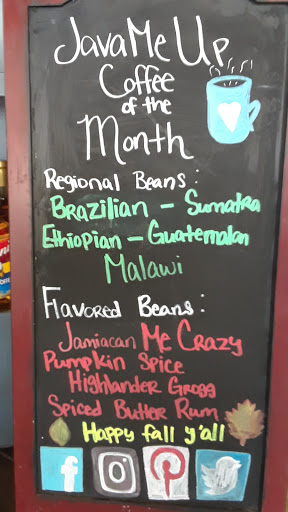 Java Me Up
Coffee
of the
Month
Regional Beans:
Brazilian - Sumatra
Ethiopian - Guatemalan
Malawi
Flavored Beans:
Jamiacan Me Crazy
Pumpkin Spice
Highlander Grogg
Spiced Butter Rum
Happy fall y'all
f